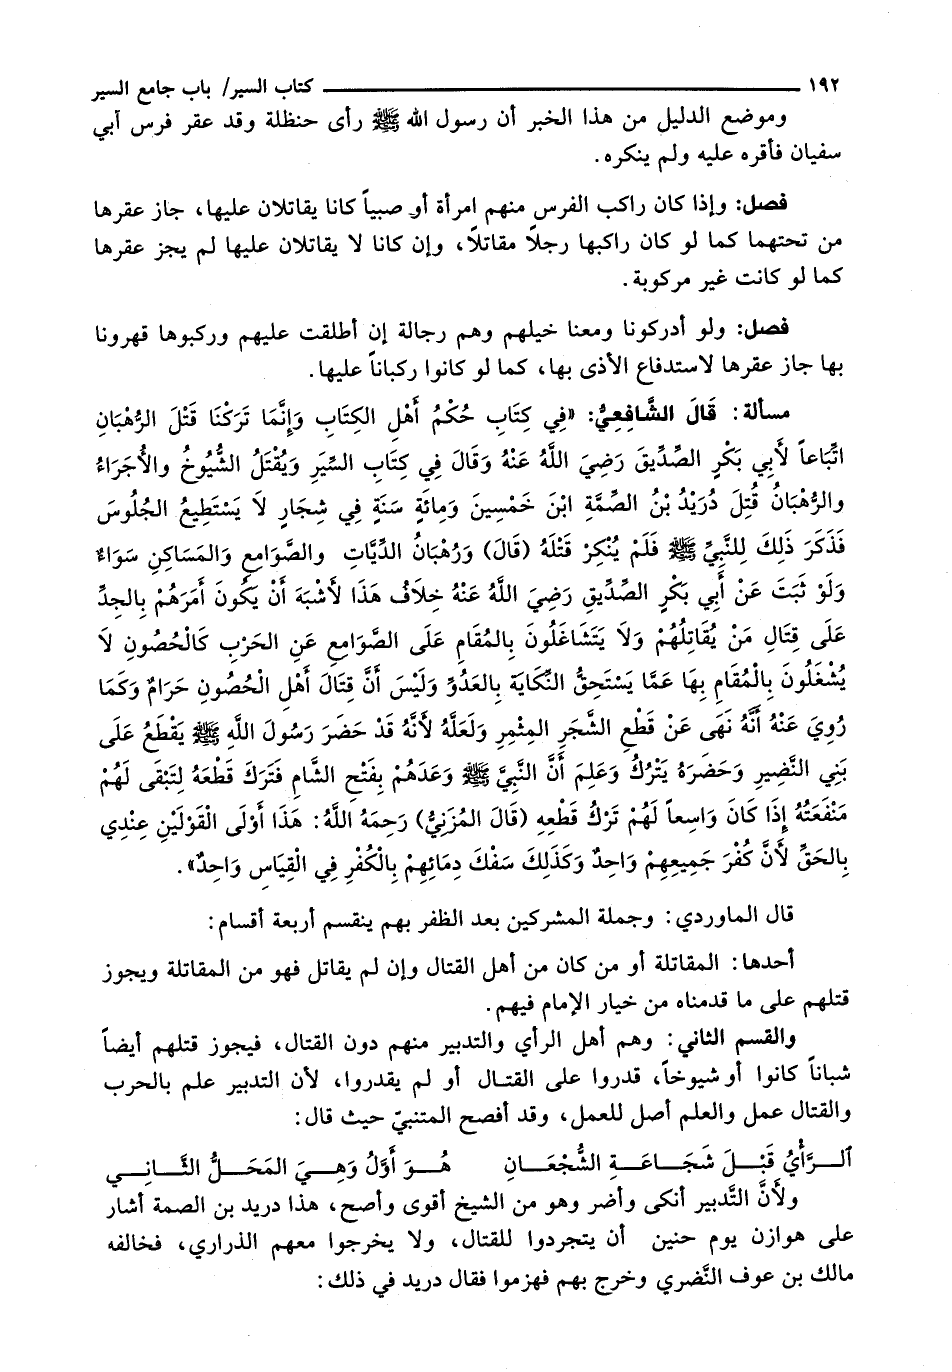 ١٩٢ كتاب السير/ باب جامع السير
وموضع الدليل من هذا الخبر أن رسول الله ﷺ رأى حنظلة وقد عقر فرس آبي
سفيان فأقره عليه ولم ينكره.
فصل: وإذا كان راكب الفرس منهم امرأة أو صبياً كانا يقاتلان عليها، جاز عقرها
من تحتهما كما لو كان راكبها رجلاً مقاتلاً، وإن كانا لا يقاتلان عليها لم يجز عقرها
كما لو كانت غير مركوبة.
فصل: ولو أدركونا ومعنا خيلهم وهم رجالة إن أطلقت عليهم وركبوها قهرونا
بها جاز عقرها لاستدفاع الأذى بها، كما لو كانوا ركباناً عليها.
مسألة: قَالَ الشَّافِعِيُّ: «فِي كِتَابِ حُكْمُ أَهْلِ الكِتَابِ وَإِنَّمَا تَرَكْنَا قَتْلَ الرُّهْبَانِ
اتِّبَاعاً لأَبِي بَكْرٍ الصِّدِّيقَ رَضِيَ اللَّهُ عَنْهُ وَقَالَ فِي كِتَابِ السِّيَرِ وَيُقْتَلُ الشُّيُوخُ والأُجَرَاءُ
والرُّهْبَانُ قُتِلَ دُرَيْدُ بْنُ الصِّمَّةِ ابْنَ خَمْسِينَ وَمِائَةِ سَنَةٍ فِي شِجَارٍ لاَ يَسْتَطِيعُ الجُلُوسَ
فَذَكَرَ ذَلِكَ لِلنَّبِيِّ ﷺ فَلَمْ يُنْكِرْ قَتْلَهُ (قَالَ) وَرُهْبَانُ الدِّيَّاتِ والصَّوَامِعِ وَالمَسَاكِنِ سَوَاءٌ
وَلَوْ ثَبَتَ عَنْ أَبِي بَكْرٍ الصِّدِّيقِ رَضِيَ اللَّهُ عَنْهُ خِلاَفُ هَذَا لأَشْبَهَ أَنْ يَكُونَ أَمَرَهُمْ بِالجِدِّ
عَلَى قِتَالِ مَنْ يُقَاتِلُهُمْ وَلاَ يَتَشَاغَلُونَ بِالمُقَامِ عَلَى الصَّوَامِعِ عَنِ الحَرْبِ كَالْحُصُونِ لاَ
يُشْغَلُونَ بِالْمُقَامِ بِهَا عَمَّا يَسْتَحِقُّ النِّكَايَةَ بِالعَدُوِّ وَلَيْسَ أَنَّ قِتَالَ أَهْلِ الْحُصُونِ حَرَامٌ وَكَمَا
رُوِيَ عَنْهُ أَنَّهُ نَهَى عَنْ قَطْعِ الشَّجَرِ المِثْمِرِ وَلَعَلَّهُ لأَنَّهُ قَدْ حَضَرَ رَسُولَ اللَّهِ ﷺ يَقْطَعُ عَلَى
بَنِي النَّضِيرِ وَحَضَرَهُ يَتْرُكُ وَعَلِمَ أَنَّ النَّبِيَّ ﷺ وَعَدَهُمْ بِفَتْحِ الشَّامِ فَتَرَكَ قَطْعَهُ لِتَبْقَى لَهُمْ
مَنْفَعَتُهُ إِذَا كَانَ وَاسِعاً لَهُمْ تَرْكُ قَطْعِهِ (قَالَ المُزَنِيُّ) رَحِمَهُ اللَّهُ: هَذَا أَوْلَى الْقَوْلَيْنِ عِنْدِي
بِالحَقِّ لأَنَّ كُفْرَ جَمِيعِهِمْ وَاحِدٌ وَكَذَلِكَ سَفْكَ دِمَائِهِمْ بِالْكُفْرِ فِي الْقِيَاسِ وَاحِدٌ».
قال الماوردي: وجملة المشركين بعد الظفر بهم ينقسم أربعة أقسام:
أحدها: المقاتلة أو من كان من أهل القتال وإن لم يقاتل فهو من المقاتلة ويجوز
قتلهم على ما قدمناه من خيار الإمام فيهم.
والقسم الثاني: وهم أهل الرأي والتدبير منهم دون القتال، فيجوز قتلهم أيضاً
شباناً كانوا أو شيوخاً، قدروا على القتال أو لم يقدروا، لأن التدبير علم بالحرب
والقتال عمل والعلم أصل للعمل، وقد أفصح المتنبيّ حيث قال:
ألرَّأْيُ قَبْلَ شَجَاعَةِ الشُّجْعَانِ هُوَ أَوَّلُ وَهِيَ المَحَلُّ الثَّانِي
ولأَنَّ التَّدبير أنكى وأضر وهو من الشيخ أقوى وأصح، هذا دريد بن الصمة أشار
على هوازن يوم حنين أن يتجردوا للقتال، ولا يخرجوا معهم الذراري، فخالفه
مالك بن عوف النَّضري وخرج بهم فهزموا فقال دريد في ذلك: